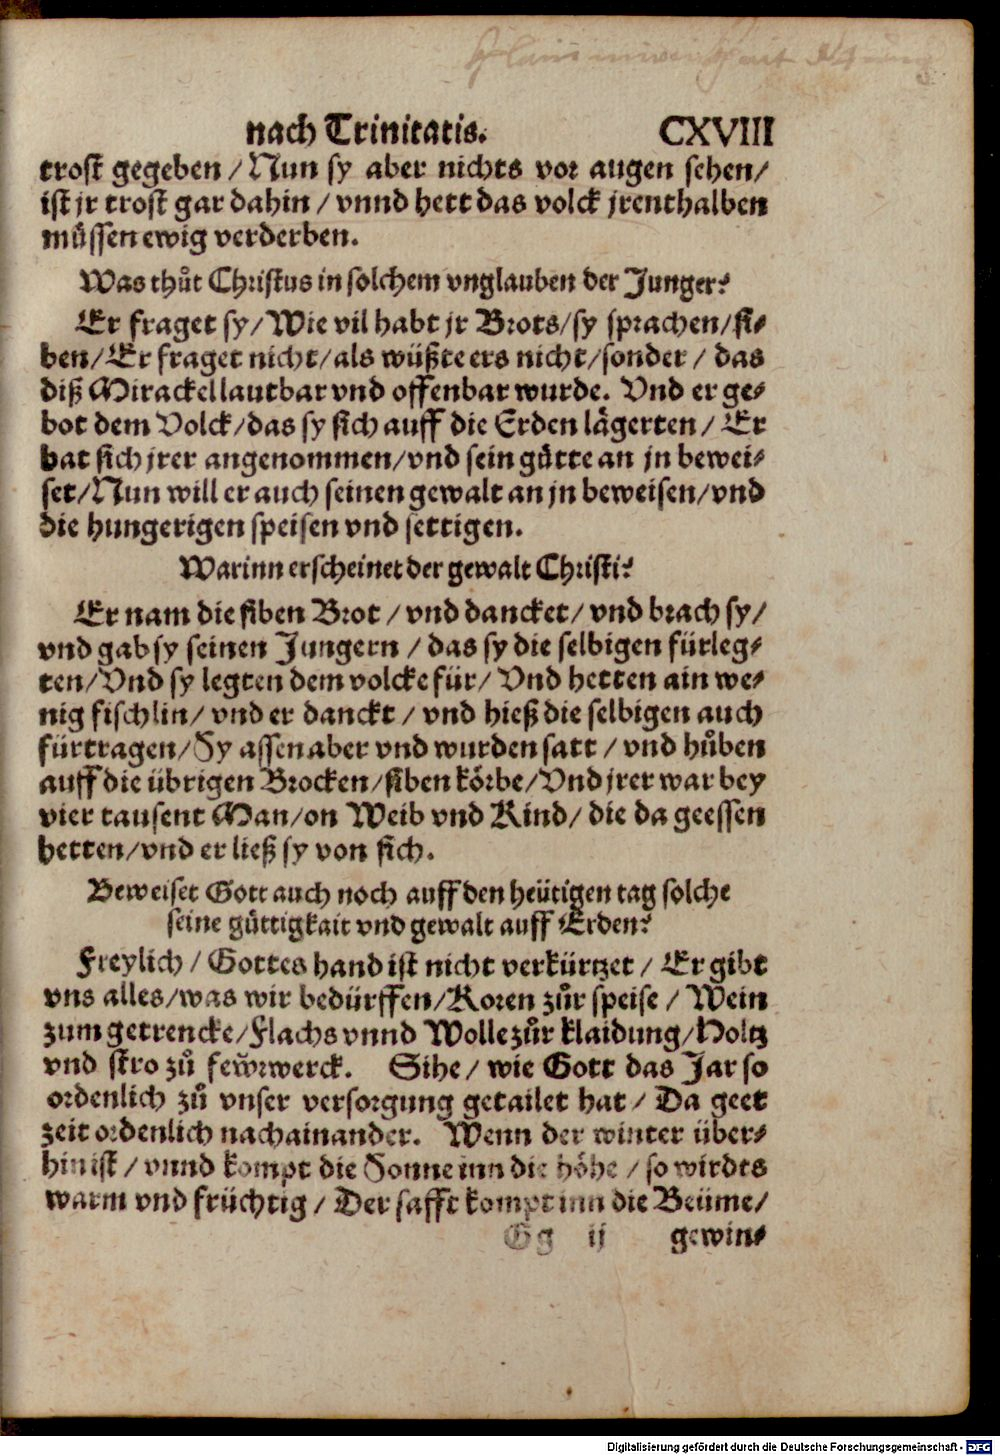 nach Trinitatis. CXVIII
trost gegeben / Nun sy aber nichts vor augen sehen/
ist jr trost gar dahin / vnnd hett das volck jrenthalben
müssen ewig verderben.
Was thůt Christus in solchem vnglauben der Junger?
Er fraget sy/ Wie vil habt jr Brots/ sy sprachen/ si⸗
ben/ Er fraget nicht/ als wüßte ers nicht/ sonder / das
diß Mirackel lautbar vnd offenbar wurde. Vnd er ge⸗
bot dem Volck/ das sy sich auff die Erden lägerten / Er
hat sich jrer angenommen/ vnd sein gütte an jn bewei⸗
set/ Nun will er auch seinen gewalt an jn beweisen/ vnd
die hungerigen speisen vnd settigen.
Warinn erscheinet der gewalt Christi?
Er nam die siben Brot / vnd dancket/ vnd brach sy/
vnd gab sy seinen Jungern / das sy die selbigen fürleg⸗
ten/ Vnd sy legten dem volcke für/ Vnd hetten ain we⸗
nig fischlin/ vnd er danckt / vnd hieß die selbigen auch
fürtragen/ Sy assen aber vnd wurden satt / vnd hůben
auff die übrigen Brocken/ siben körbe/ Vnd jrer war bey
vier tausent Man/ on Weib vnd Kind/ die da geessen
hetten/ vnd er ließ sy von sich.
Beweiset Gott auch noch auff den heütigen tag solche
seine güttigkait vnd gewalt auff Erden?
Freylich / Gottes hand ist nicht verkürtzet / Er gibt
vns alles/ was wir bedürffen/ Koren zůr speise / Wein
zum getrencke/ Flachs vnnd Wolle zůr klaidung/ Holtz
vnd stro zů fewrwerck. Sihe / wie Gott das Jar so
ordenlich zů vnser versorgung getailet hat / Da geet
zeit ordenlich nachainander. Wenn der winter über⸗
hin ist / vnnd kompt die Sonne inn die höhe / so wirdts
warm vnd früchtig / Der safft kompt inn die Beüme/
Gg ij gewin⸗
Digitalisierung gefördert durch die Deutsche Forschungsgemeinschaft - DFG